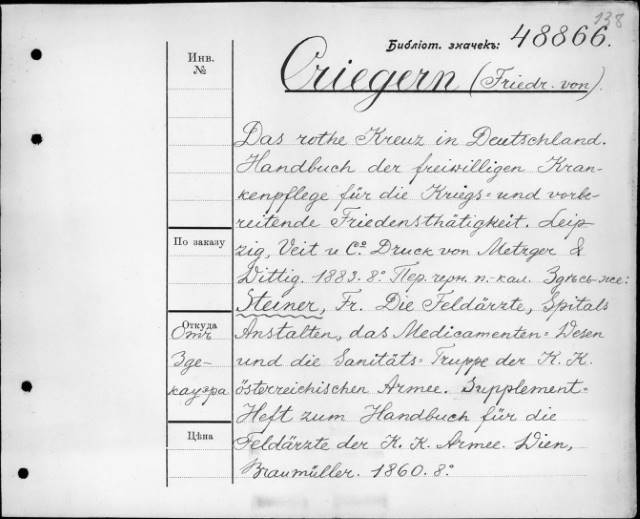 138
Библiот. значекъ: 48866.
Инв.
№
Criegern (Friedr. von).
Das rothe Kreuz in Deutschland.
Handbuch der freiwilligen Kran-
kenpflege für die Kriegs= und vorbe-
reitende Friedensthätigkeit. Leip
По заказу
zig, Veit u Co. Druck von Metzger &
Wittig. 1883. 8o Пер. черн. п.-кал. Здѣсь-же:
Steiner, Fr. Die Feldärzte, Spitals
Откуда
Отъ
Anstalten, das Medicamenten= Wesen
Зде-
und die Sanitäts= Truppe der K. K.
кауэра
österreichischen Armee. Supplement=
Heft zum Handbuch für die
Цѣна
Feldärzte der K. K. Armee. Wien,
Braumüller. 1860. 8o